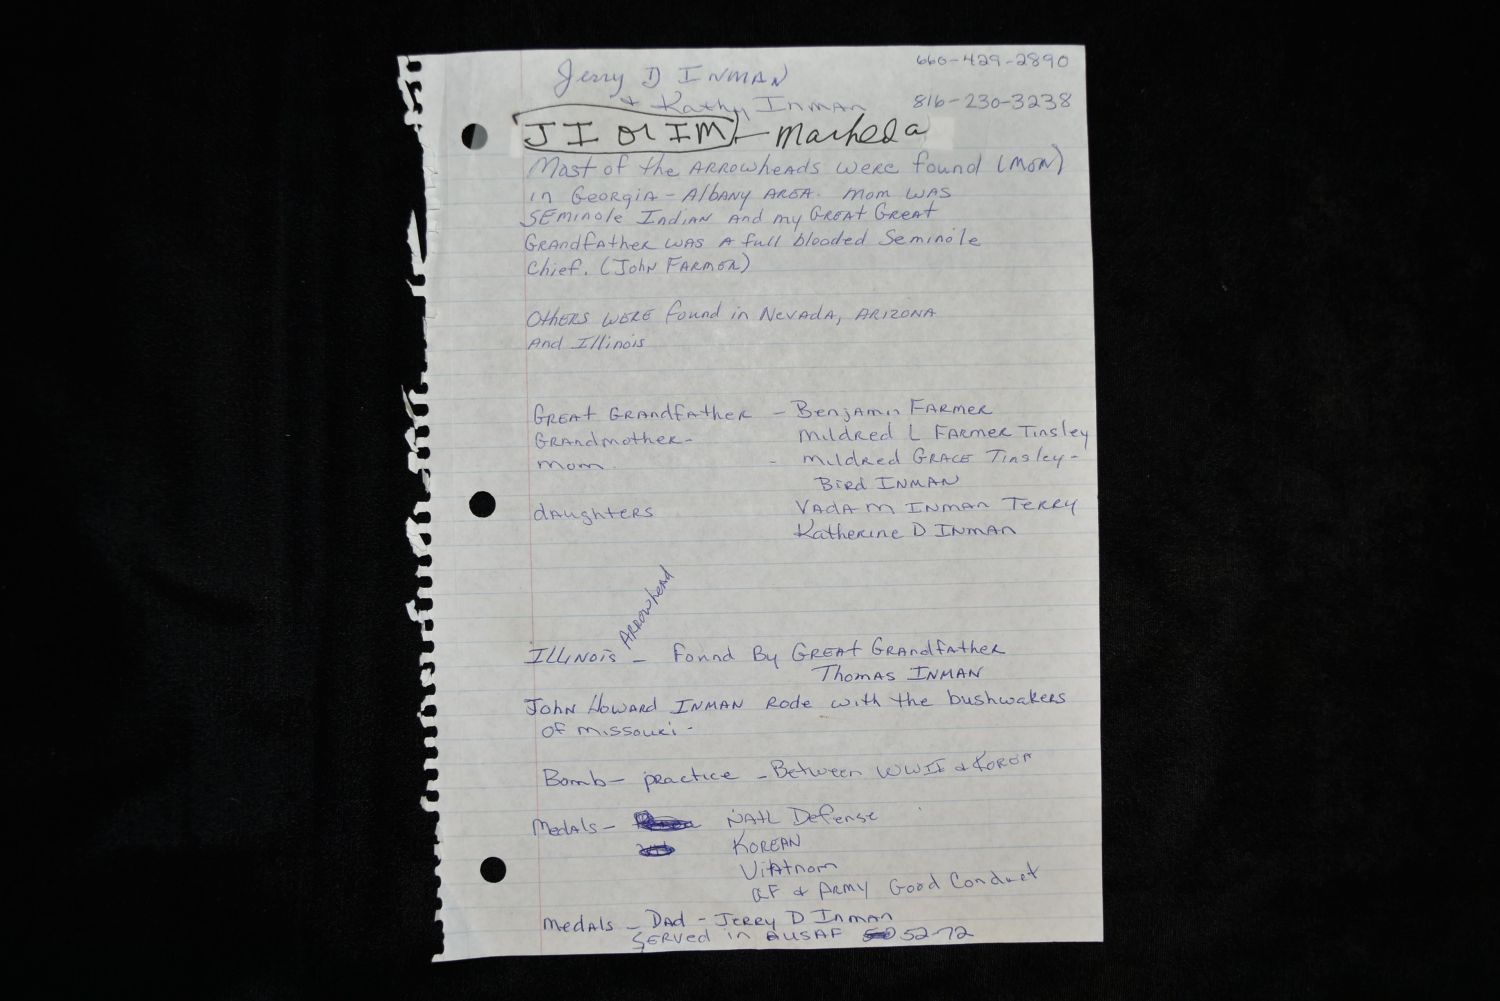 Jerry D INMAN
660-429-2890
+ Kathy INMAN
816-230-3238
JI or IM - Marked a
Most of the ARROWheADS were found (MOM)
in Georgia - Albany AREA. Mom WAS
SEminole Indian and my Great Great
Grandfather was a full blooded Seminole
Chief. (John FARMER)
OtheRS WERE found in NevADA, ARIZONA
And Illinois
Great Grandfather - Benjamin FARMER
Grandmother - Mildred L FARMER Tinsley
mom - mildred GRACE Tinsley -
Bird INMAN
daughters VADA M INMAN TERRY
Katherine D INMAN
Arrowhead
ILLINOIS - Found By Great Grandfather
Thomas INMAN
John Howard INMAN Rode with the bushwakers
of missouri -
Bomb - practice - Between WWII & Korea
Medals - NAtL Defense
KOREAN
ViAtnam
AF & ARMY Good Conduct
medals - DAD - JERRY D INMAN
SERVED in USAF 52-72